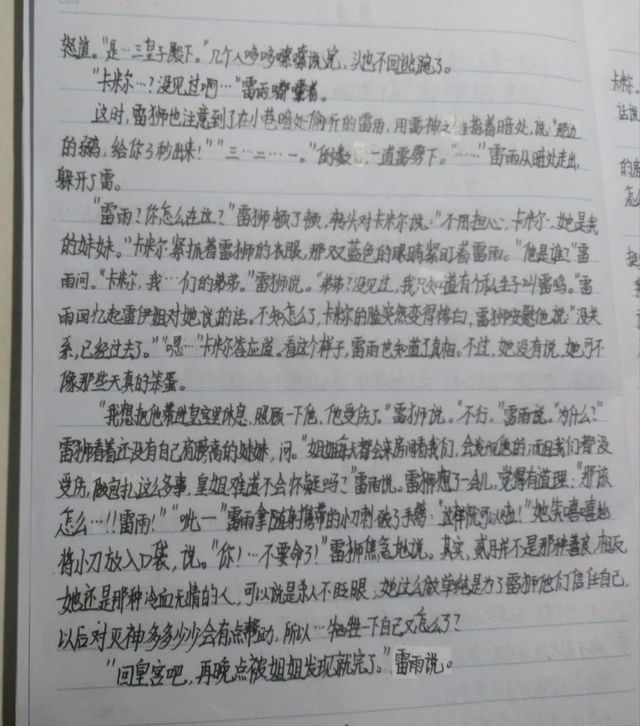 怒道。"是…三皇子殿下。"几个人哆哆嗦嗦说完，头也不回逃跑了。
"卡米尔…？没见过啊…"雷雨嘟囔着。
这时，雷狮也注意到了在小巷暗处偷听的雷雨，用雷神之锤指着暗处，说："那边
的弱鸡，给你3秒出来！""三…二…一。"倒数，一道雷劈下。"……"雷雨从暗处走出，
躲开了雷。
"雷雨？你怎么在这？"雷狮顿了顿，转头对卡米尔说："不用担心，卡米尔，她是我
的妹妹。"卡米尔紧抓着雷狮的衣服，那双蓝色的眼睛紧盯着雷雨。"他是谁？"雷
雨问。"卡米尔，我…们的弟弟。"雷狮说。"弟弟？没见过，我只知道有个私生子叫雷鸣。"雷
雨回忆起雷伊姐对她说的话。不知怎么了，卡米尔的脸突然变得惨白，雷狮安慰他说："没关
系，已经过去了。""嗯…"卡米尔答应道。看这个样子，雷雨也知道了真相。不过，她没有说，她可不
像那些天真的笨蛋。
"我想把他带进皇宫里休息，照顾一下他，他受伤了。"雷狮说。"不行。"雷雨说。"为什么？"
雷狮看着还没有自己肩膀高的妹妹，问。"姐姐每天都会来房间看我们，会发现他的，而且我们都没
受伤，敢包扎这么多事，皇姐难道不会怀疑吗？"雷雨说。雷狮想了一会儿，觉得有道理："那该
怎么…！！雷雨！""呲一"雷雨拿随身携带的小刀划破了手臂："这样就可以啦！"她笑嘻嘻地
将小刀放入口袋，说。"你！…不要命了！"雷狮焦急地说。其实，贰月并不是那种善良，相反，
她还是那种冷血无情的人，可以说是杀人不眨眼，她这么做单纯是为了雷狮他们信任自己，
以后对灭神多多少少会有点帮助，所以…牺牲一下自己又怎么了？
"回皇宫吧，再晚点被姐姐发现就完了。"雷雨说。